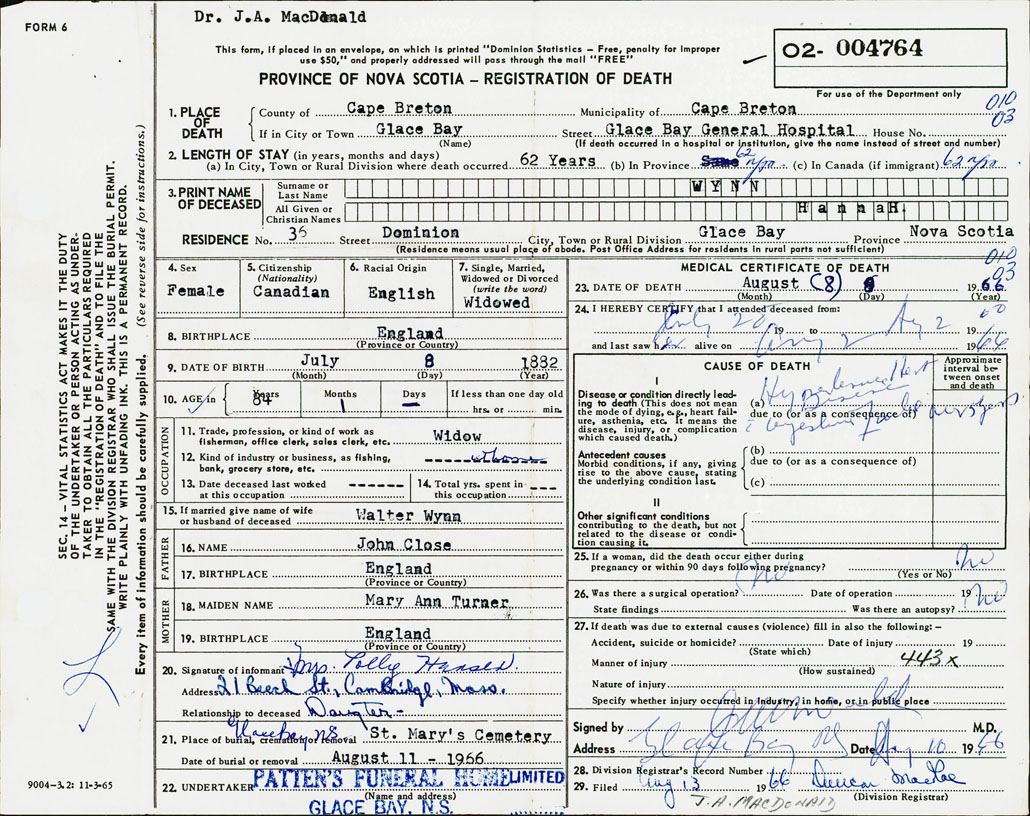 Dr. J.A. MacDonald
FORM 6
This form, if placed in an envelope, on which is printed "Dominion Statistics – Free, penalty for improper
use $50," and properly addressed will pass through the mail "FREE"
PROVINCE OF NOVA SCOTIA – REGISTRATION OF DEATH
02- 004764
For use of the Department only
010
03
1. PLACE OF DEATH
County of Cape Breton Municipality of Cape Breton
If in City or Town Glace Bay Street Glace Bay General Hospital House No.
(Name) (If death occurred in a hospital or institution, give the name instead of street and number)
2. LENGTH OF STAY (in years, months and days)
(a) In City, Town or Rural Division where death occurred 62 Years (b) In Province Same 62 yrs (c) In Canada (if immigrant) 62 yrs
3. PRINT NAME OF DECEASED
Surname or Last Name WYNN
All Given or Christian Names HannaH.
RESIDENCE No. 36 Street Dominion City, Town or Rural Division Glace Bay Province Nova Scotia
(Residence means usual place of abode. Post Office Address for residents in rural parts not sufficient)
4. Sex
Female
5. Citizenship
(Nationality)
Canadian
6. Racial Origin
English
7. Single, Married,
Widowed or Divorced
(write the word)
Widowed
8. BIRTHPLACE England
(Province or Country)
9. DATE OF BIRTH July 8 1882
(Month) (Day) (Year)
10. AGE in Years 84 Months 1 Days — If less than one day old
hrs. or min.
OCCUPATION
11. Trade, profession, or kind of work as
fisherman, office clerk, sales clerk, etc. Widow
12. Kind of industry or business, as fishing,
bank, grocery store, etc.
13. Date deceased last worked
at this occupation
14. Total yrs. spent in
this occupation
15. If married give name of wife
or husband of deceased Walter Wynn
FATHER
16. NAME John Close
17. BIRTHPLACE England
(Province or Country)
MOTHER
18. MAIDEN NAME Mary Ann Turner
19. BIRTHPLACE England
(Province or Country)
20. Signature of informant Mrs. Polly Hansen.
Address 21 Beech St., Cambridge, Mass.
Relationship to deceased Daughter -
Glace Bay N.S.
21. Place of burial, cremation or removal St. Mary's Cemetery
Date of burial or removal August 11 - 1966
22. UNDERTAKER PATTEN'S FUNERAL HOME LIMITED
(Name and address)
GLACE BAY, N.S.
010
03
MEDICAL CERTIFICATE OF DEATH
23. DATE OF DEATH August (8) 1966
(Month) (Day) (Year)
24. I HEREBY CERTIFY that I attended deceased from:
July 20 19 to Aug 2 19
and last saw her alive on Aug 2 1966
CAUSE OF DEATH
Approximate
interval be-
tween onset
and death
I
Disease or condition directly lead-
ing to death (This does not mean
the mode of dying, e.g., heart fail-
ure, asthenia, etc. It means the
disease, injury, or complication
which caused death.)
(a) Hypertensive Heart
Disease
due to (or as a consequence of)
Antecedent causes
Morbid conditions, if any, giving
rise to the above cause, stating
the underlying condition last.
(b)
due to (or as a consequence of)
(c)
II
Other significant conditions
contributing to the death, but not
related to the disease or condi-
tion causing it.
25. If a woman, did the death occur either during
pregnancy or within 90 days following pregnancy? No
(Yes or No)
26. Was there a surgical operation? No Date of operation 19
State findings Was there an autopsy? No
27. If death was due to external causes (violence) fill in also the following: –
Accident, suicide or homicide? Date of injury 19
(State which)
Manner of injury 443x
(How sustained)
Nature of injury
Specify whether injury occurred in industry, in home, or in public place
Signed by M.D.
Address Glace Bay NS Date Aug 10 1966
28. Division Registrar's Record Number
29. Filed Aug 13 1966 Duncan MacRae
(Division Registrar)
J.A. MACDONALD
SEC. 14 – VITAL STATISTICS ACT MAKES IT THE DUTY
OF THE UNDERTAKER OR PERSON ACTING AS UNDER-
TAKER TO OBTAIN ALL THE PARTICULARS REQUIRED
IN THE "REGISTRATION OF DEATH" AND TO FILE THE
SAME WITH THE DIVISION REGISTRAR WHO SHALL ISSUE THE BURIAL PERMIT.
WRITE PLAINLY WITH UNFADING INK. THIS IS A PERMANENT RECORD.
Every item of information should be carefully supplied. (See reverse side for instructions.)
9004–3.2: 11-3-65